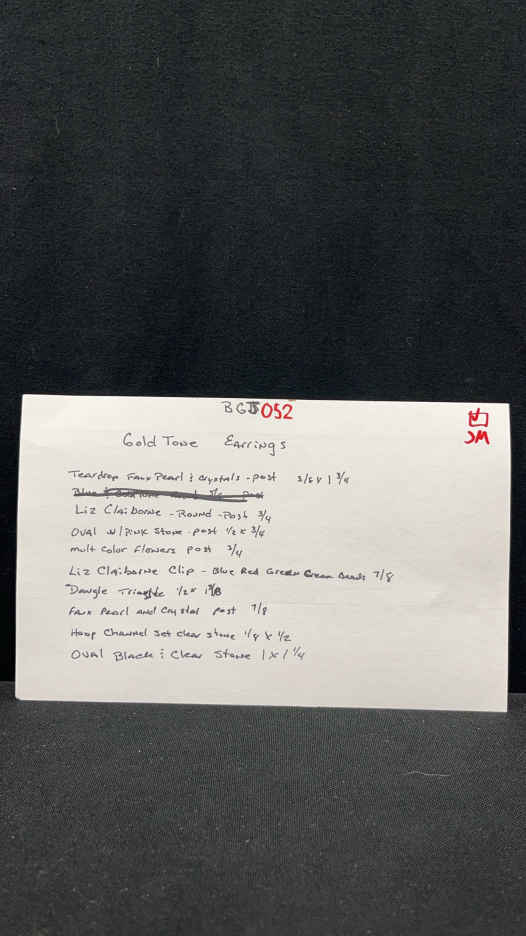 BGJ052
JW
Gold Tone Earrings
Teardrop Faux Pearl & Crystals - post 5/8 x 1 3/4
Liz Claiborne - Round - Post 3/4
Oval w/Pink Stone - post 1/2 x 3/4
mult color Flowers post 3/4
Liz Claiborne Clip - Blue Red Green Cream Beads 7/8
Dangle Triangle 1/2 x
Faux Pearl and Crystal post 7/8
Hoop Channel Set clear stone 1/8 x 1/2
Oval Black & Clear Stone 1 x 1 1/4